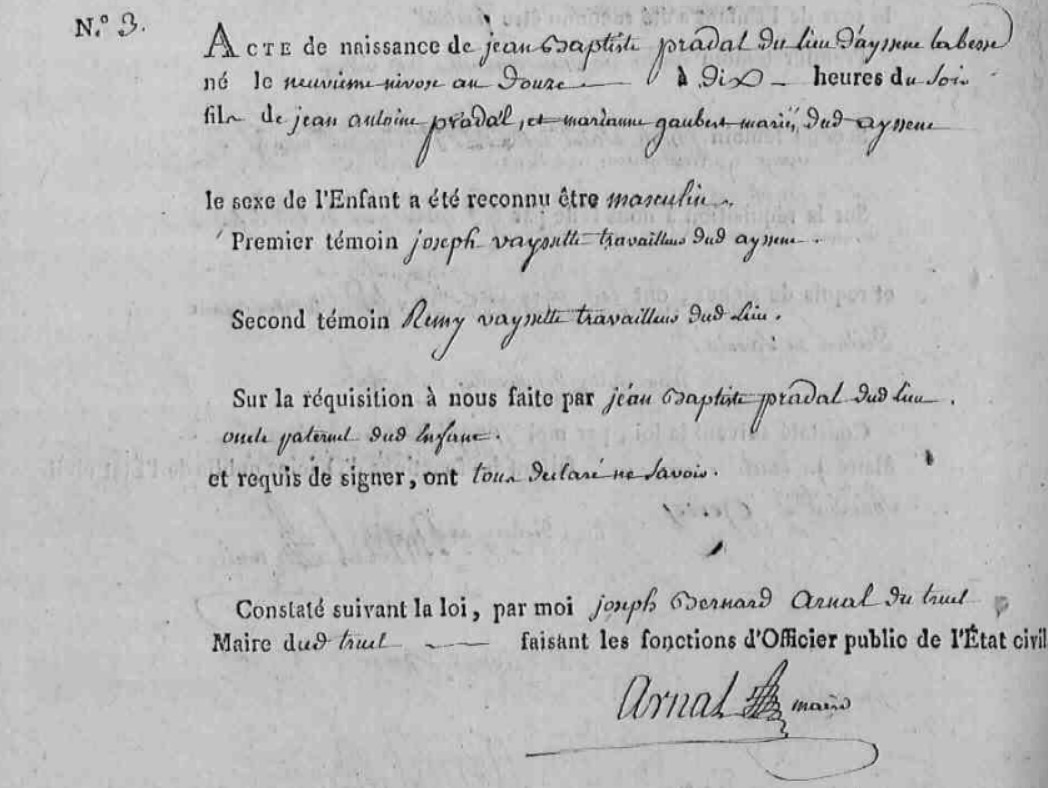 N.º 3.
ACTE de naissance de jean Baptiste pradal du lieu d'ayssene labesse
né le neuvieme nivose an Douze — à Dix — heures du soir
fils de jean antoine pradal, et marianne gaubert mariés dud ayssene
le sexe de l'Enfant a été reconnu être masculin.
Premier témoin joseph vayssette travailleur dud ayssene.
Second témoin Remy vayssette travailleur dud lieu.
Sur la réquisition à nous faite par jean Baptiste pradal dud lieu.
oncle paternel dud Enfant.
et requis de signer, ont tous declaré ne savoir.
Constaté suivant la loi, par moi joseph Bernard Arnal du truel
Maire dud truel — faisant les fonctions d'Officier public de l'État civil
Arnal maire